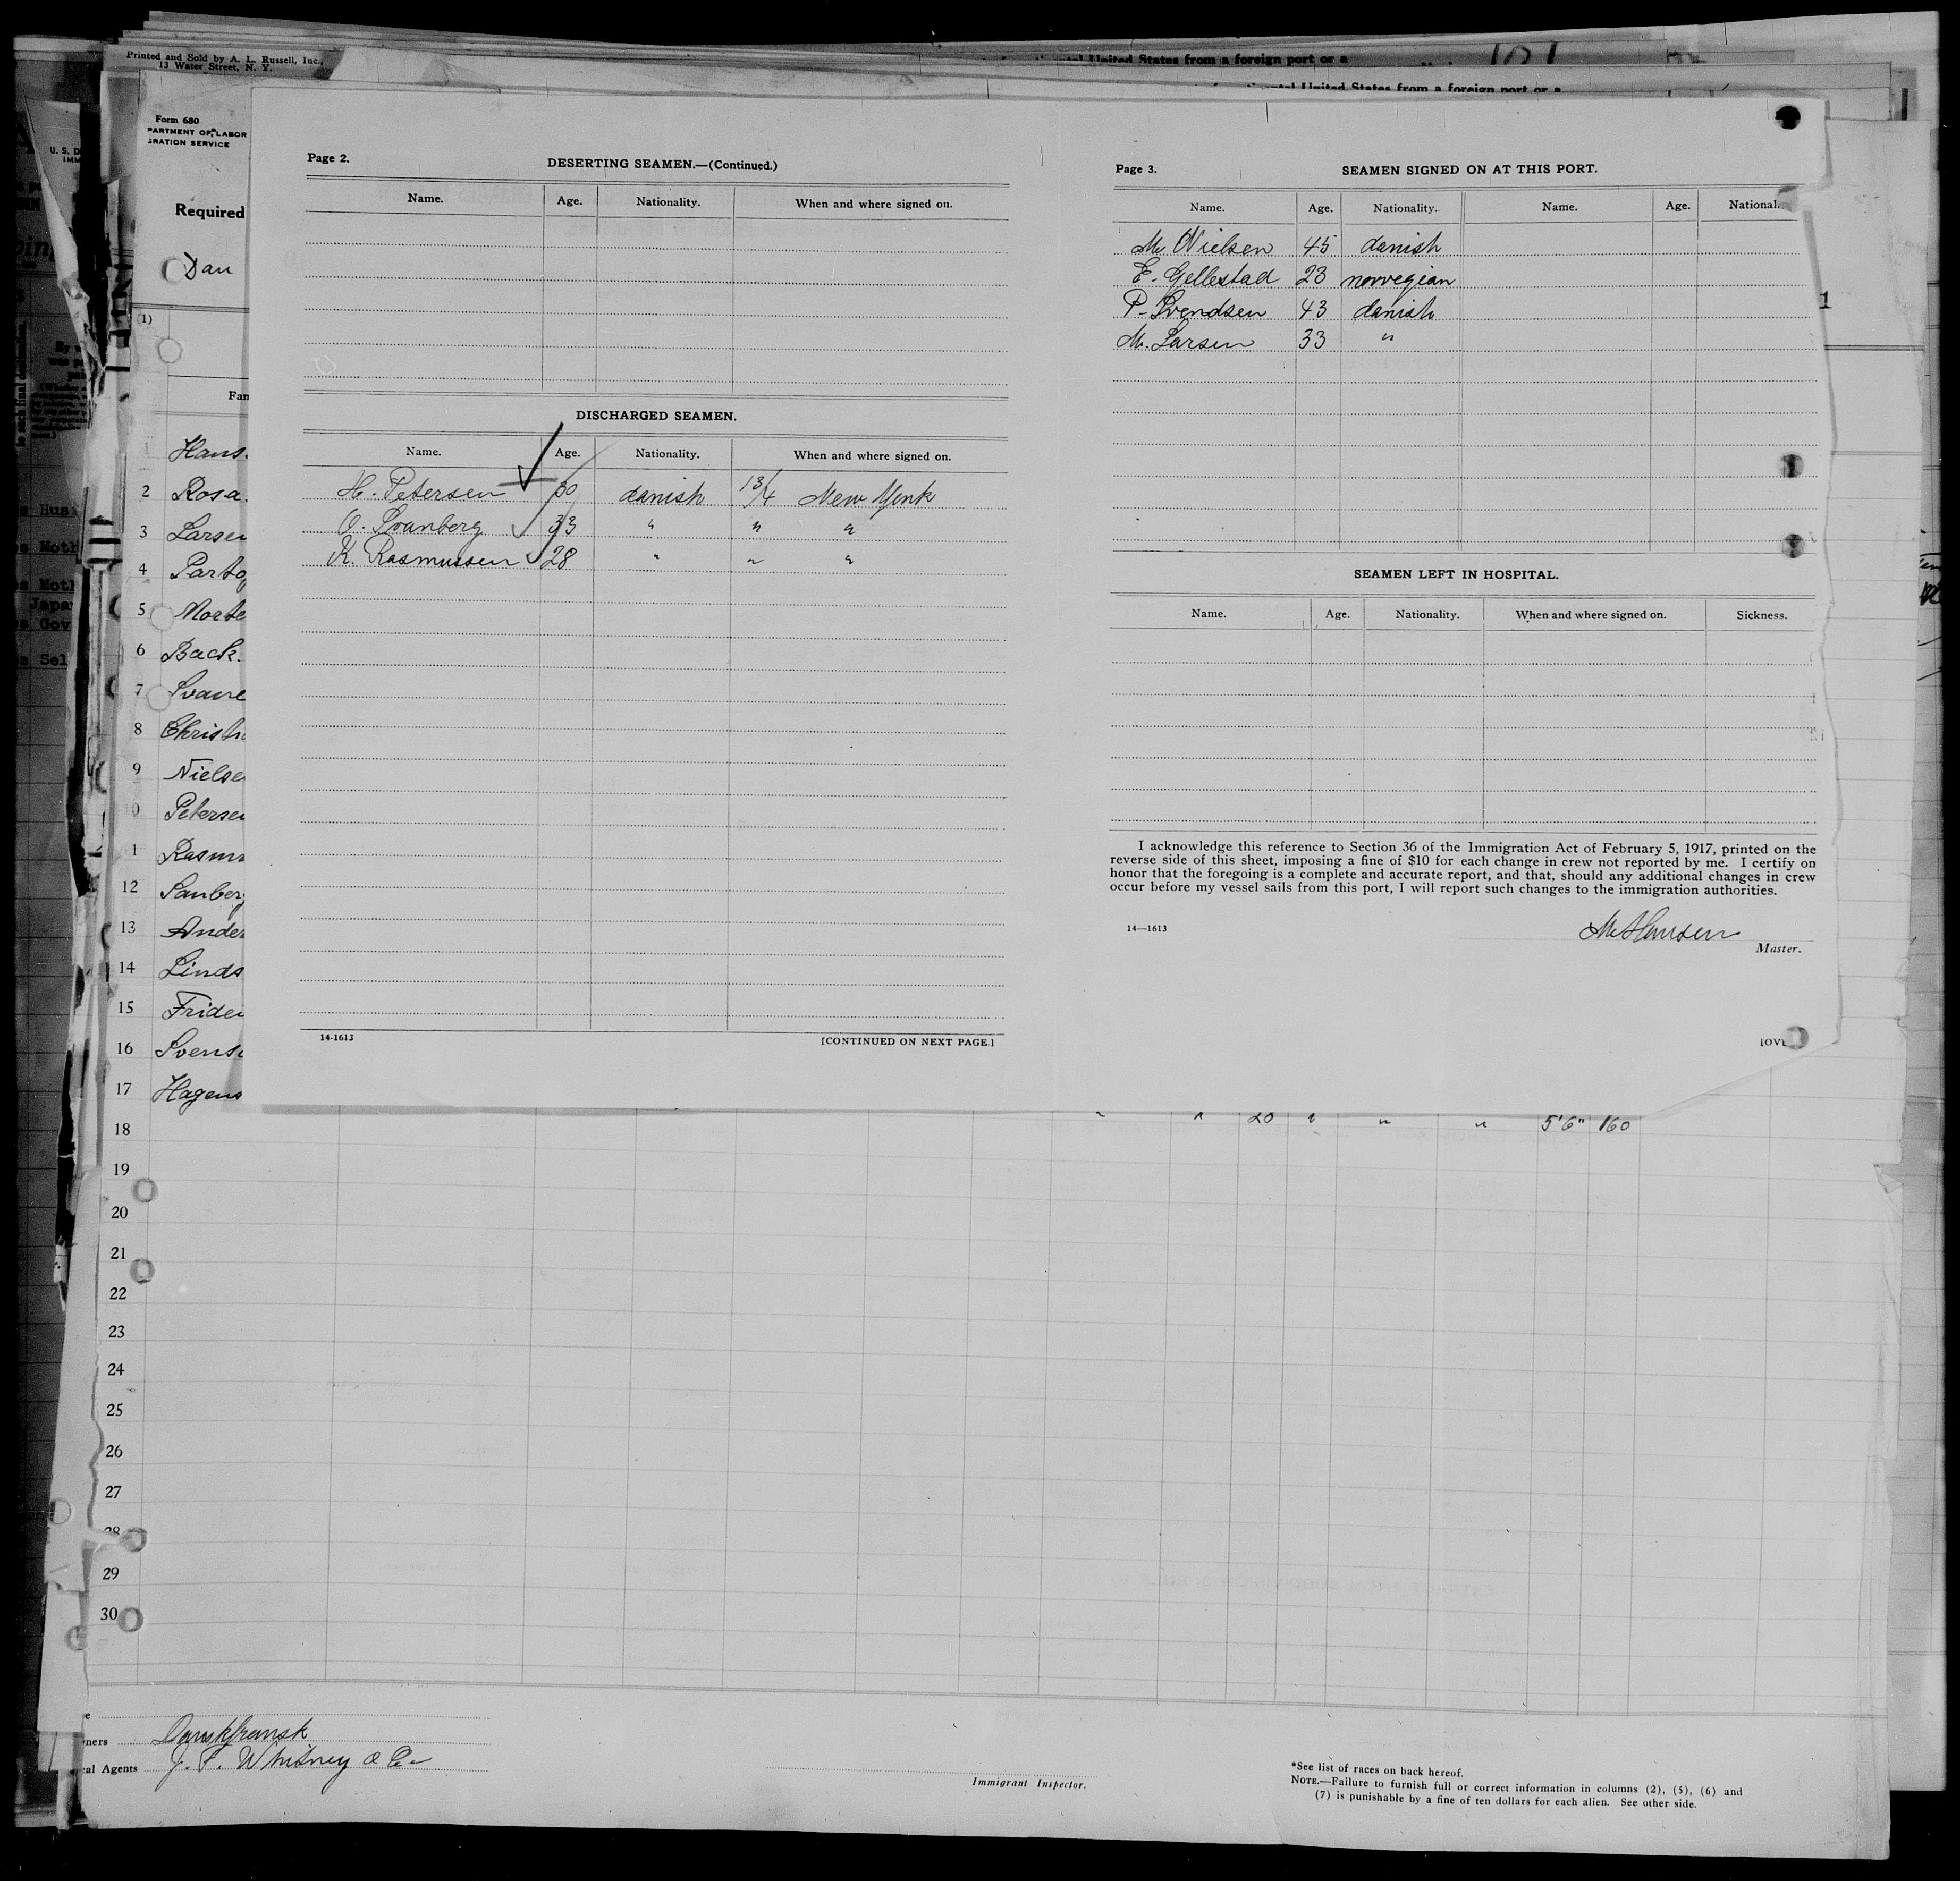 Printed and Sold by A. L. Russell, Inc.,
13 Water Street, N. Y.
United States from a foreign port or a
United States from a foreign port or a
Form 680
PARTMENT OF LABOR
GRATION SERVICE
Required
Dan
(1)
Fam
Hans
2 Rosa
3 Larsen
4 Parto
5 Morte
6 Back
7 Svane
8 Christi
9 Nielse
0 Peterse
1 Rasmu
12 Sanberg
13 Ander
14 Linds
15 Friden
16 Svens
17 Hagens
Page 2.
DESERTING SEAMEN.—(Continued.)
Name. Age. Nationality. When and where signed on.
DISCHARGED SEAMEN.
Name. Age. Nationality. When and where signed on.
H. Petersen 30 danish 13/4 New York
O. Svanberg 33 " " "
K. Rasmussen 28 " " "
14-1613 [CONTINUED ON NEXT PAGE.]
Page 3.
SEAMEN SIGNED ON AT THIS PORT.
Name. Age. Nationality. Name. Age. National
M. Nielsen 45 danish
E. Gellestad 23 norwegian
P. Svendsen 43 danish
M. Larsen 33 "
SEAMEN LEFT IN HOSPITAL.
Name. Age. Nationality. When and where signed on. Sickness.
I acknowledge this reference to Section 36 of the Immigration Act of February 5, 1917, printed on the
reverse side of this sheet, imposing a fine of $10 for each change in crew not reported by me. I certify on
honor that the foregoing is a complete and accurate report, and that, should any additional changes in crew
occur before my vessel sails from this port, I will report such changes to the immigration authorities.
14—1613
M Hansen
Master.
[OVE
20 " " 5'6" 160
18
19
20
21
22
23
24
25
26
27
28
29
30
ners Danskfransk
cal Agents J. F. Whitney & Co
Immigrant Inspector.
*See list of races on back hereof.
NOTE.—Failure to furnish full or correct information in columns (2), (5), (6) and
(7) is punishable by a fine of ten dollars for each alien. See other side.